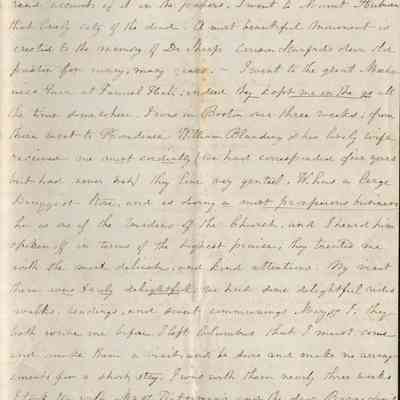 read accounts of it in the papers. I went to Mount Auburn
that lovely city of the dead. A most beautiful Monument is
erected to the memory of Dr Sharp.
pastor for many, many years. – I went to the great
at Faneuil Hall, indeed they kept me on the go all
the time some where. I was in Boston over three weeks; from
there went to Providence. William Blanding & his lovely wife
received me most cordially (we had corresponded five years
but had never met) they live very genteel. W. has a large
Druggist Store, and is doing a most prosperous business
he is one of the leaders of the Church, and I heard him
spoken of in terms of the highest praise, they treated me
with the most delicate, and kind attentions. My visit
there was truly delightful, we had some delightful rides
walks, readings, and sweet communings. they
both wrote me before I left Columbus that I must come
and make them a visit, and be sure and make no arrange
ments for a short stay. I was with them nearly three weeks